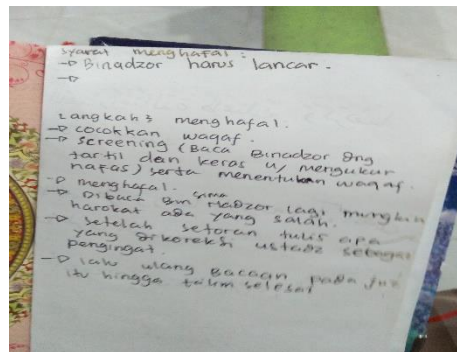 syarat menghafal :
→ Binadzor harus lancar.
→
Langkah² menghafal.
→ cocokkan waqaf.
→ Screening (Baca Binadzor dng
tartil dan keras u/ mengukur
nafas) serta menentukan waqaf.
→ menghafal.
→ Dibaca Bin Nadzor lagi mungkin
harokat ada yang salah.
→ setelah setoran tulis apa
yang dikoreksi ustadz sebagai
pengingat.
→ lalu ulang Bacaan pada juz
itu hingga selesai